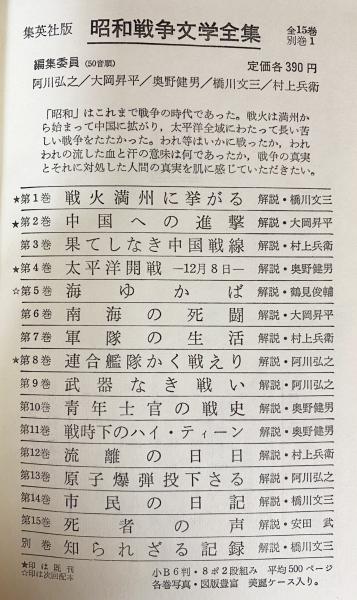 集英社版 昭和戦争文学全集 全15巻 別巻1
編集委員 (50音順) 定価各390円
阿川弘之/大岡昇平/奥野健男/橋川文三/村上兵衛
「昭和」はこれまで戦争の時代であった。戦火は満州か
ら始まって中国に拡がり、太平洋全域にわたって長い苦
しい戦争をたたかった。われ等はいかに戦ったか、われ
われの流した血と汗の意味は何であったか、戦争の真実
とそれに対処した人間の真実を肌に感じていただきたい。
★第1巻 戦火満州に挙がる 解説・橋川文三
★第2巻 中国への進撃 解説・大岡昇平
第3巻 果てしなき中国戦線 解説・村上兵衛
★第4巻 太平洋開戦 ―12月8日― 解説・奥野健男
☆第5巻 海ゆかば 解説・鶴見俊輔
第6巻 南海の死闘 解説・大岡昇平
第7巻 軍隊の生活 解説・村上兵衛
★第8巻 連合艦隊かく戦えり 解説・阿川弘之
第9巻 武器なき戦い 解説・阿川弘之
第10巻 青年士官の戦史 解説・奥野健男
第11巻 戦時下のハイ・ティーン 解説・奥野健男
第12巻 流離の日日 解説・村上兵衛
第13巻 原子爆弾投下さる 解説・阿川弘之
第14巻 市民の日記 解説・橋川文三
第15巻 死者の声 解説・安田武
別巻 知られざる記録 解説・橋川文三
★印は既刊
☆印は次回配本
小B6判・8ポ2段組み 平均500ページ
各巻写真・図版豊富 美麗ケース入り。